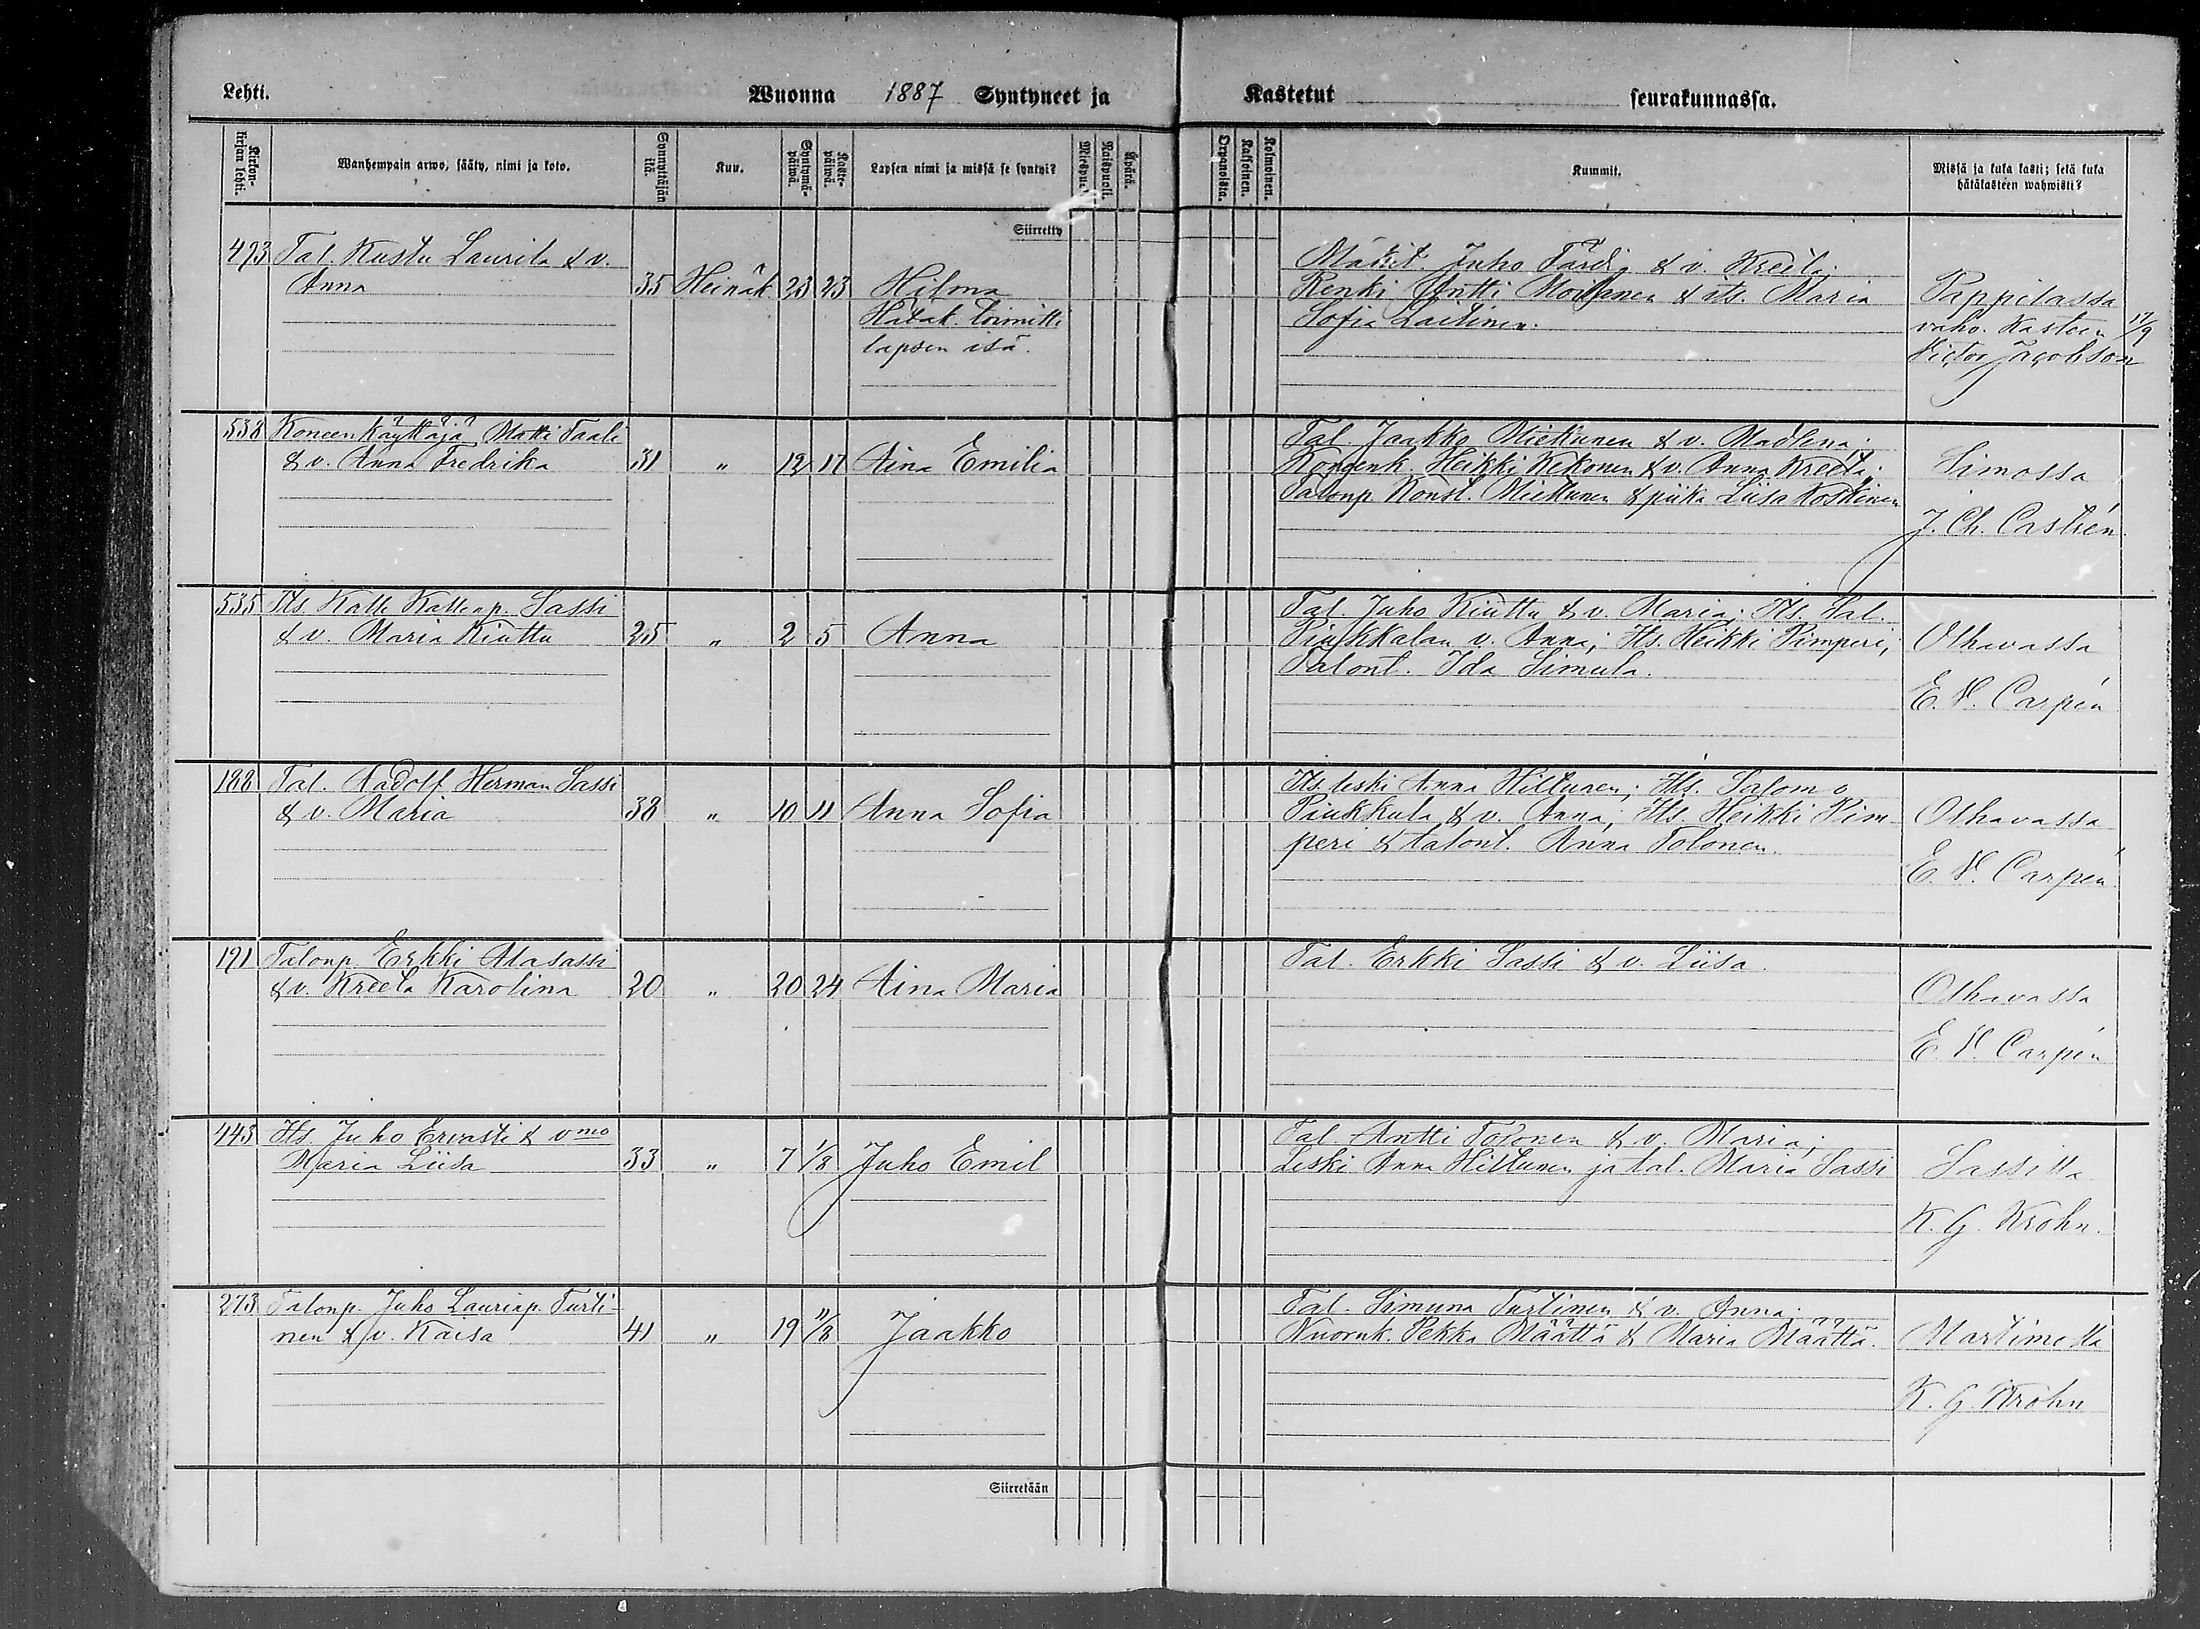 Lehti.
Wuonna 1887 Syntyneet ja
Kastetut seurakunnassa.
Kirkon-
kirjan lehti.
Wanhempain arwo, sääty, nimi ja koto.
Synnyttäjän
ikä
Kuu.
Syntymä-
päiwä.
Kaste-
päiwä.
Lapsen nimi ja missä se syntyi?
Miespuoli.
Naispuoli.
Äpärä.
Orpanoista.
Kaksoinen.
Kolmoinen.
Kummit.
Missä ja kuka kasti; sekä kuka
hätäkasteen wahwisti?
Siirretty
493 Tal. Kustu Laurila & v.
Anna 35 Heinäk 23 23 Hilma
Hätäk. toimitti
lapsen isä.
Mäkit. Juho & v. Kreeta;
Renki Antti Moilanen & its. Maria
Sofia Laitinen.
Pappilassa
vahv. kasteen 17/9
Victor Jacobson
538 Koneenkäyttäjä Matti Paalu
& v. Anna Fredrika 31 " 12 17 Aina Emilia
Tal. Jaakko Miettunen & v. Madlena;
Heikki Kekonen & v. Anna Kreeta;
Talonp Konst. Miettunen & piika Liisa Koskinen
Simossa
J. Ch. Castrén.
535 Its. Kalle Kallenp. Sassi
& v. Maria Kiuttu 25 " 2 5 Anna
Tal. Juho Kiuttu & v. Maria; Its. Sal.
Piukkulan v. Anna; Its. Heikki Pimperi,
Talont. Ida Simula.
Olhavassa
E. V. Carpén
188 Tal. Aadolf Herman Sassi
& v. Maria 38 " 10 11 Anna Sofia
Its. leski Anna Hiltunen; Its. Salomo
Piukkula & v. Anna; Its. Heikki Pim-
peri & talont. Anna Tolonen.
Olhavassa
E. V. Carpén
191 Talonp. Erkki Alasassi
& v. Kreeta Karolina 20 " 20 24 Aina Maria
Tal. Erkki Sassi & v. Liisa.
Olhavassa
E. V. Carpén
443 Its. Juho Ervasti & vmo
Maria Liisa 33 " 7 1/8 Juho Emil
Tal. Antti Tolonen & v. Maria;
Leski Anna Hiltunen ja tal. Maria Sassi
Sassilla
K. G. Krohn.
273 Talonp. Juho Laurinp. Turti-
nen & v. Kaisa 41 " 19 11/8 Jaakko
Tal. Simuna Turtinen & v. Anna;
Nuoruk. Pekka Määttä & Maria Määttä.
Martimolla
K. G. Krohn
Siirretään